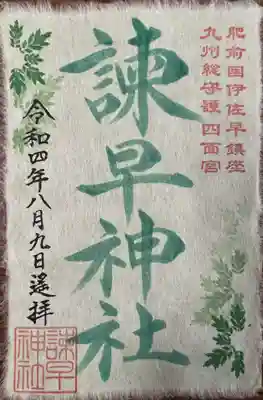 肥前国伊佐早鎮座
九州総守護四面宮
諫早神社
令和四年八月九日遥拝
諫早
神社